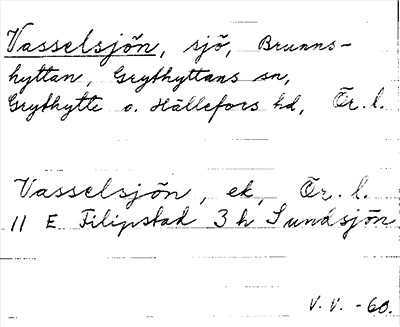 Vasselsjön, sjö, Brunns-
hyttan, Grythyttans sn,
Grythytte o. Hällefors hd, Ör. l.
Vasselsjön, ek, Ör. l.
11 E Filipstad 3 h Sundsjön
V. V. -60.